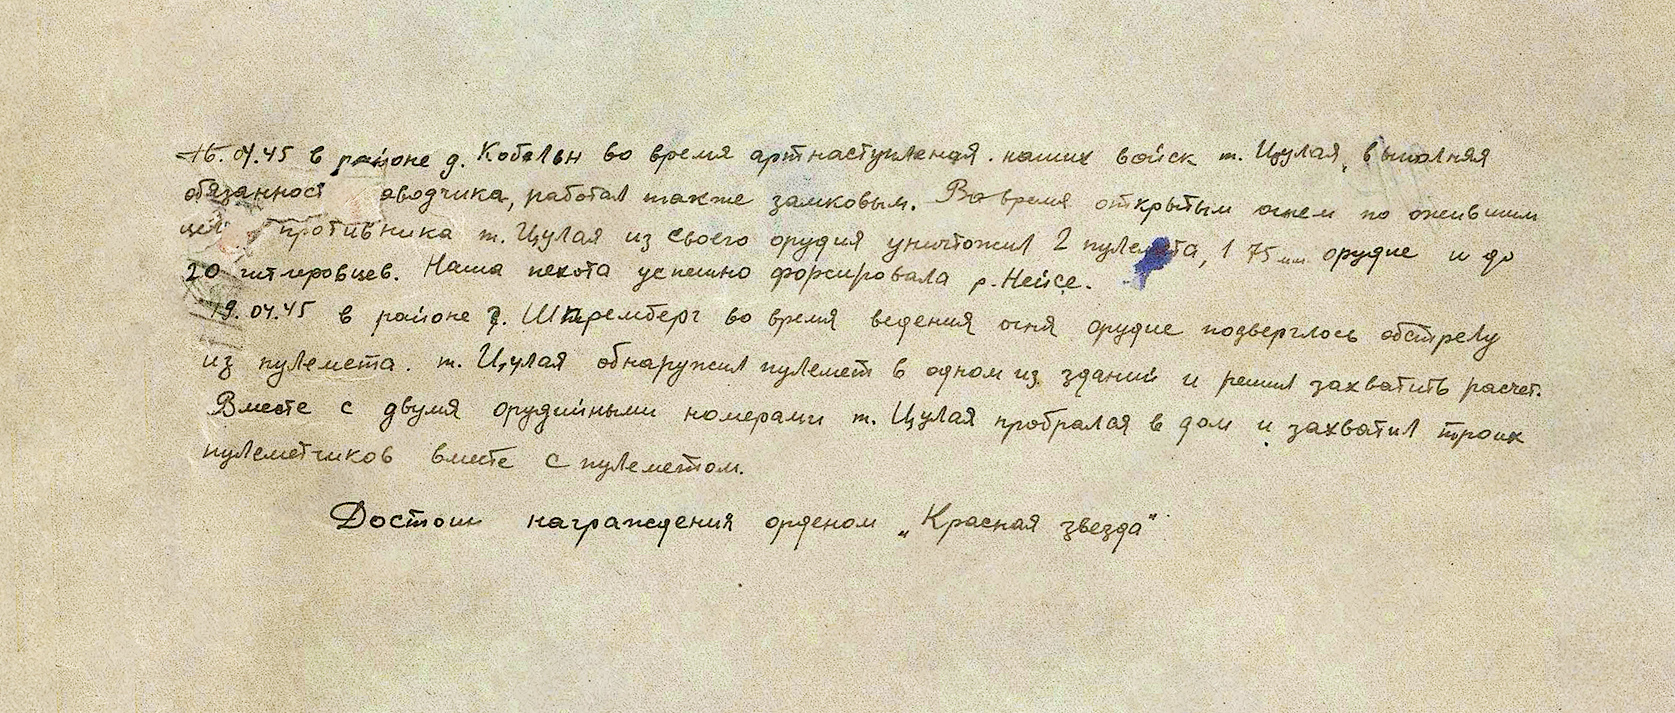 16.04.45 в районе д. Кобельн во время артнаступления наших войск т. Цулая, выполняя
обязанност аводчика, работал также замковым. Во время открытым огнем по ожившим
цел противника т. Цулая из своего орудия уничтожил 2 пулемета, 1 75 мм орудие и до
20 гитлеровцев. Наша пехота успешно форсировала р. Нейсе.
19.04.45 в районе г. Шпремберг во время ведения огня орудие подверглось обстрелу
из пулемета. т. Цулая обнаружил пулемет в одном из зданий и решил захватить расчет.
Вместе с двумя орудийными номерами т. Цулая пробрался в дом и захватил троих
пулеметчиков вместе с пулеметом.
Достоин награждения орденом „Красная звезда"